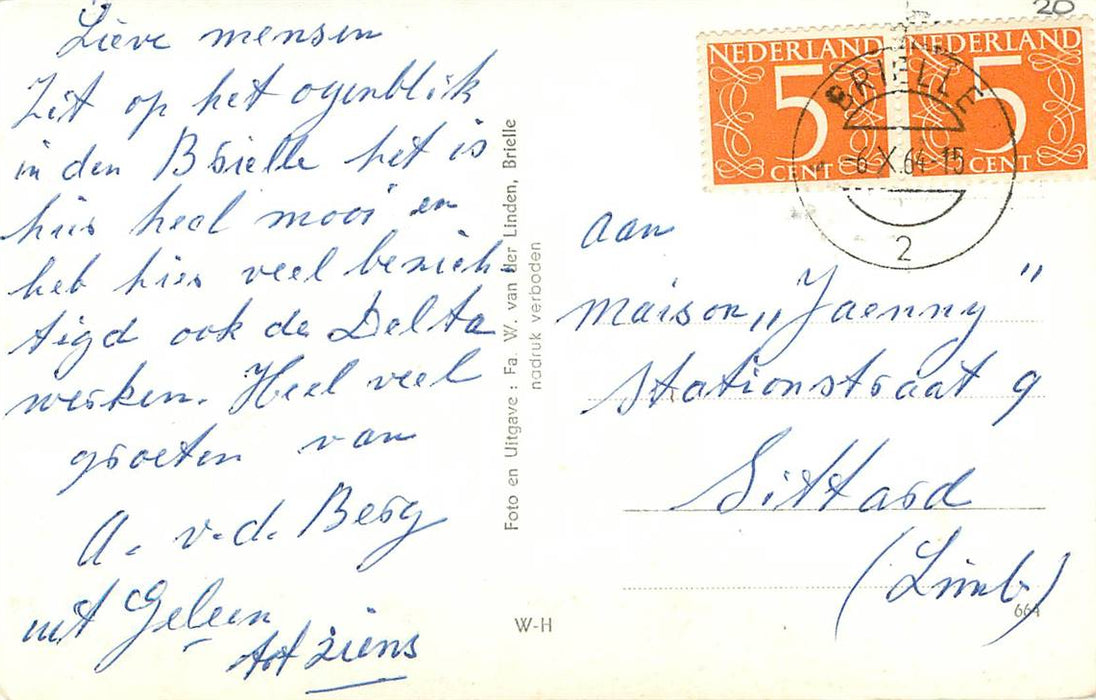 Lieve mensen
Zit op het ogenblik
in den Brielle het is
hier heel mooi en
heb hier veel bezich-
tigd ook de Delta
werken. Heel veel
groeten van
A. v.d. Berg
uit Geleen
tot ziens
Foto en Uitgave : Fa. W. van der Linden, Brielle
nadruk verboden
W-H
20
NEDERLAND
5
CENT
NEDERLAND
5
CENT
BRIELLE
-6.X.64-15
2
aan
Maison „Jaenny"
Stationstraat 9
Sittard
(Limb)
661